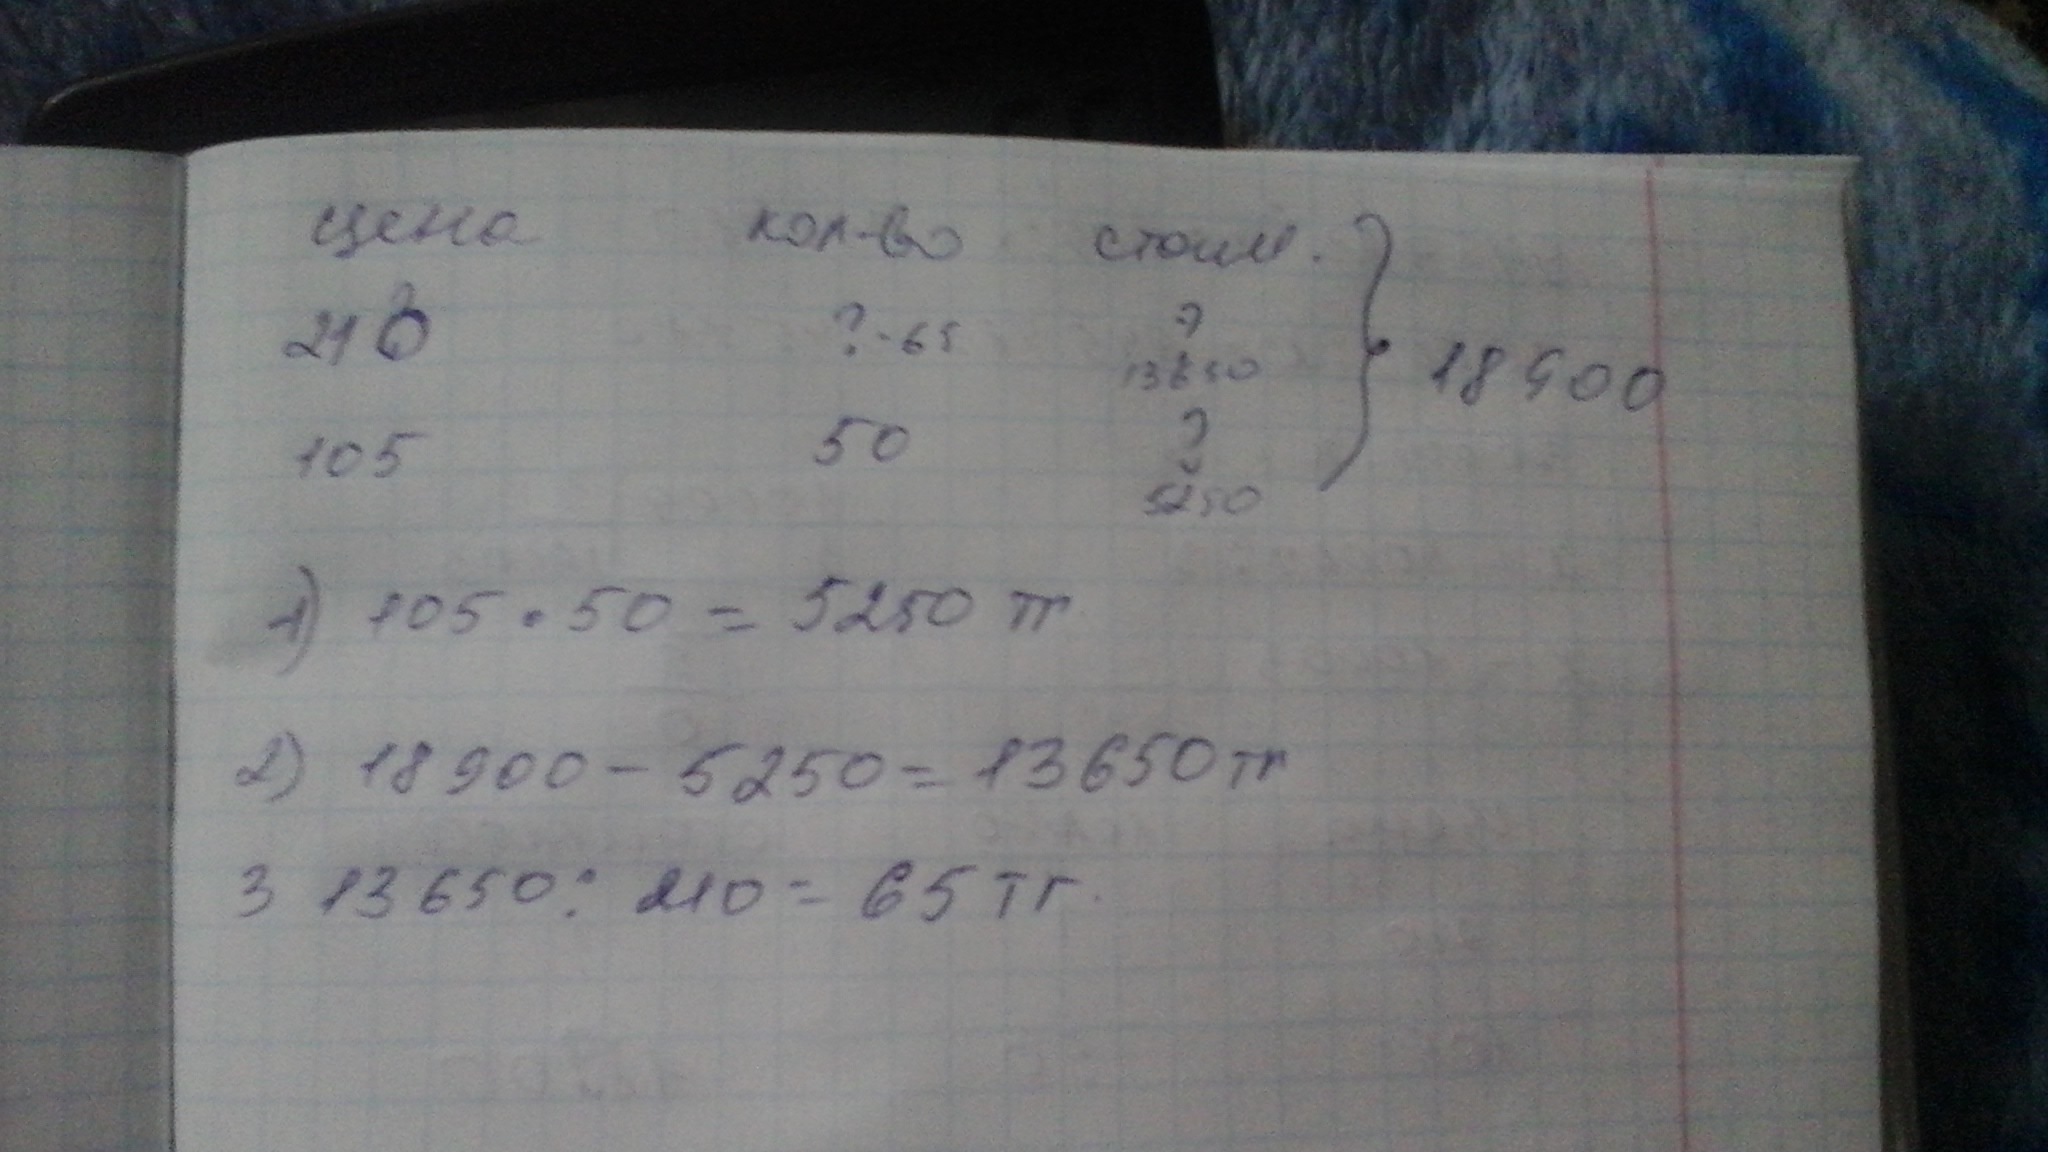 цена кол-во стоим.
210 ?-65 ?
13650
18900
105 50 ?
5250
1) 105 · 50 = 5250 тг
2) 18900 - 5250 = 13650 тг
3 13650 : 210 = 65 тг.